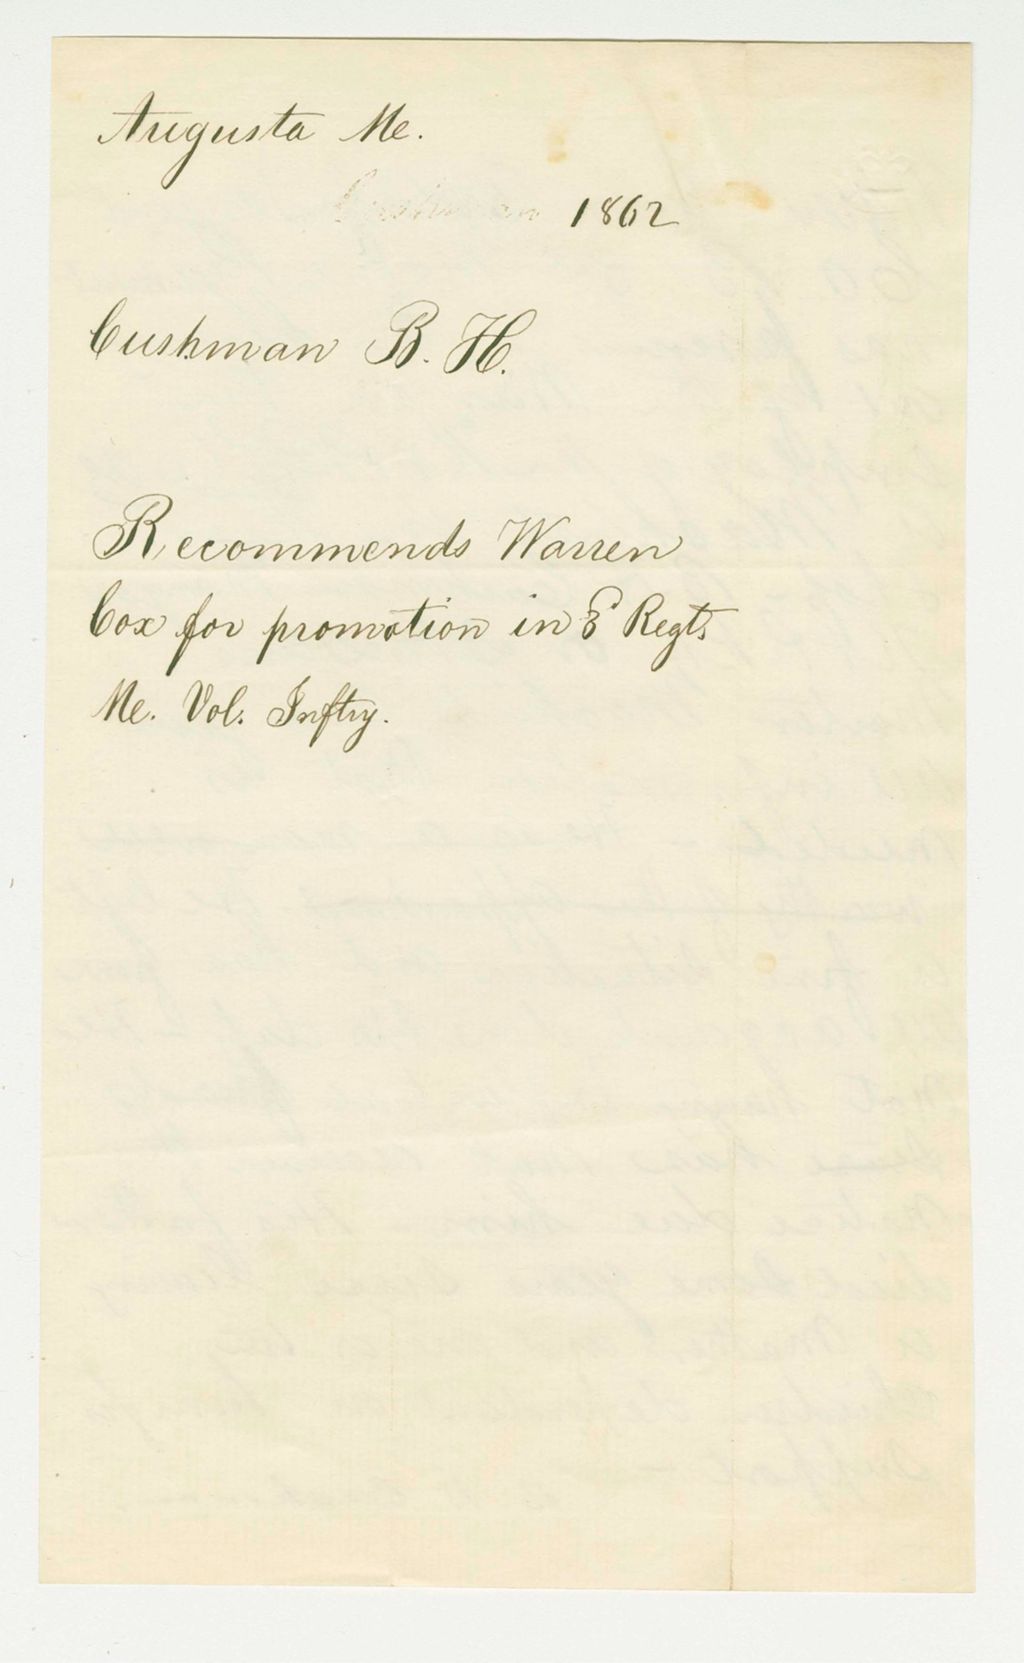 Augusta Me.
Cushman 1862
Cushman B. H.
Recommends Warren
Cox for promotion in 8 Regt
Me. Vol. Inftry.